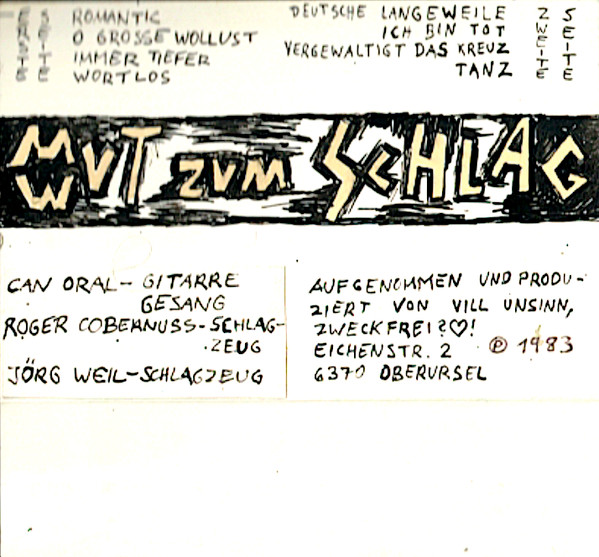 ERSTE SEITE
ROMANTIC
O GROSSE WOLLUST
IMMER TIEFER
WORTLOS
DEUTSCHE LANGEWEILE
ICH BIN TOT
VERGEWALTIGT DAS KREUZ
TANZ
ZWEITE SEITE
MUT ZUM SCHLAG
W
CAN ORAL - GITARRE
GESANG
ROGER COBERNUSS - SCHLAG-
ZEUG
JÖRG WEIL - SCHLAGZEUG
AUFGENOMMEN UND PRODU-
ZIERT VON VILL UNSINN,
ZWECKFREI?♡!
EICHENSTR. 2 ℗ 1983
6370 OBERURSEL